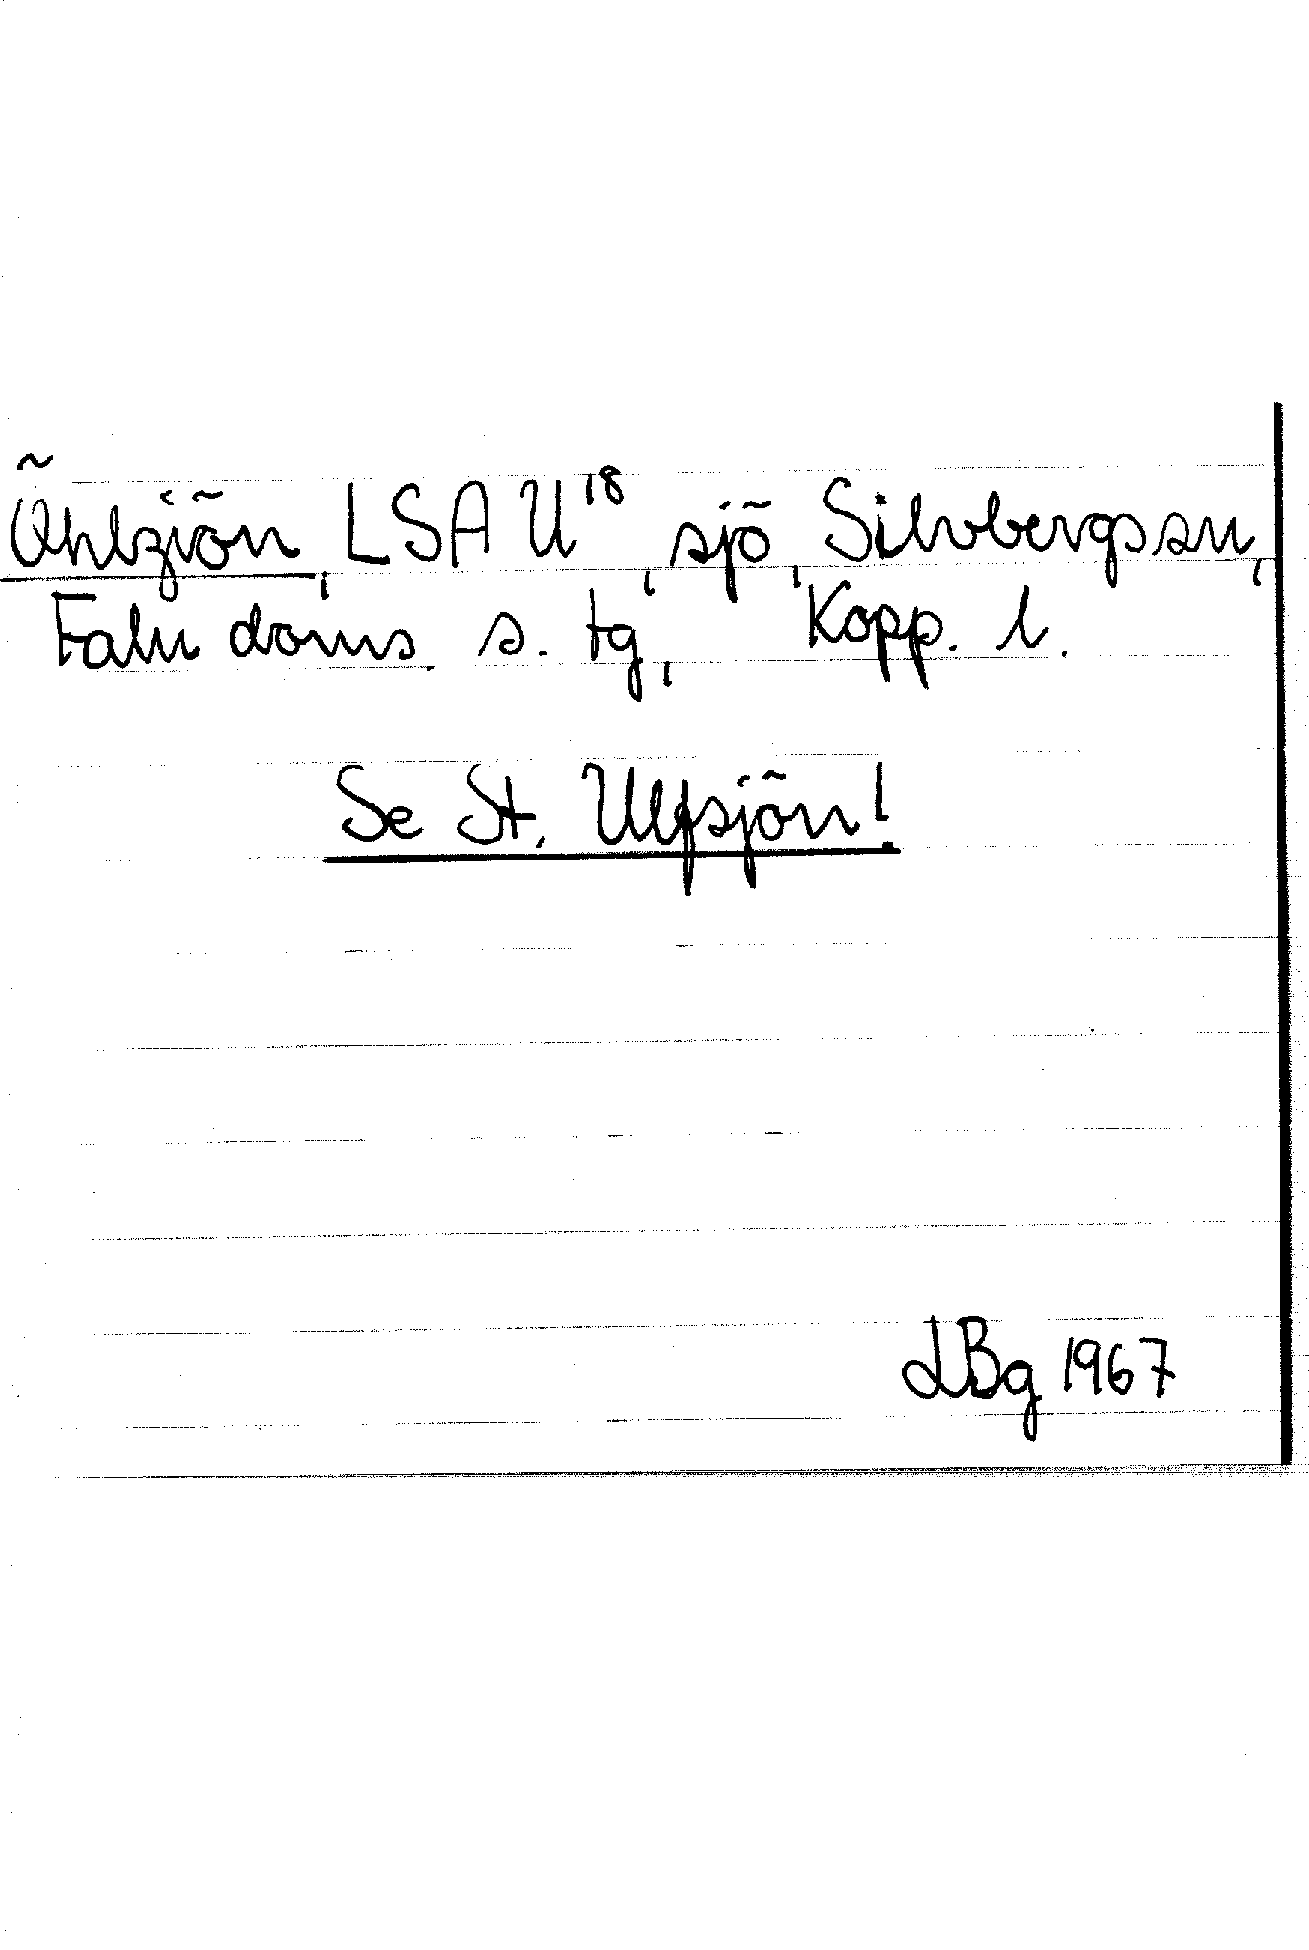 Öhlziön, LSA U¹⁸, sjö, Silvbergssn,
Falu doms. s. tg, Kopp. l.
Se St. Ulfsjön!
LBg 1967